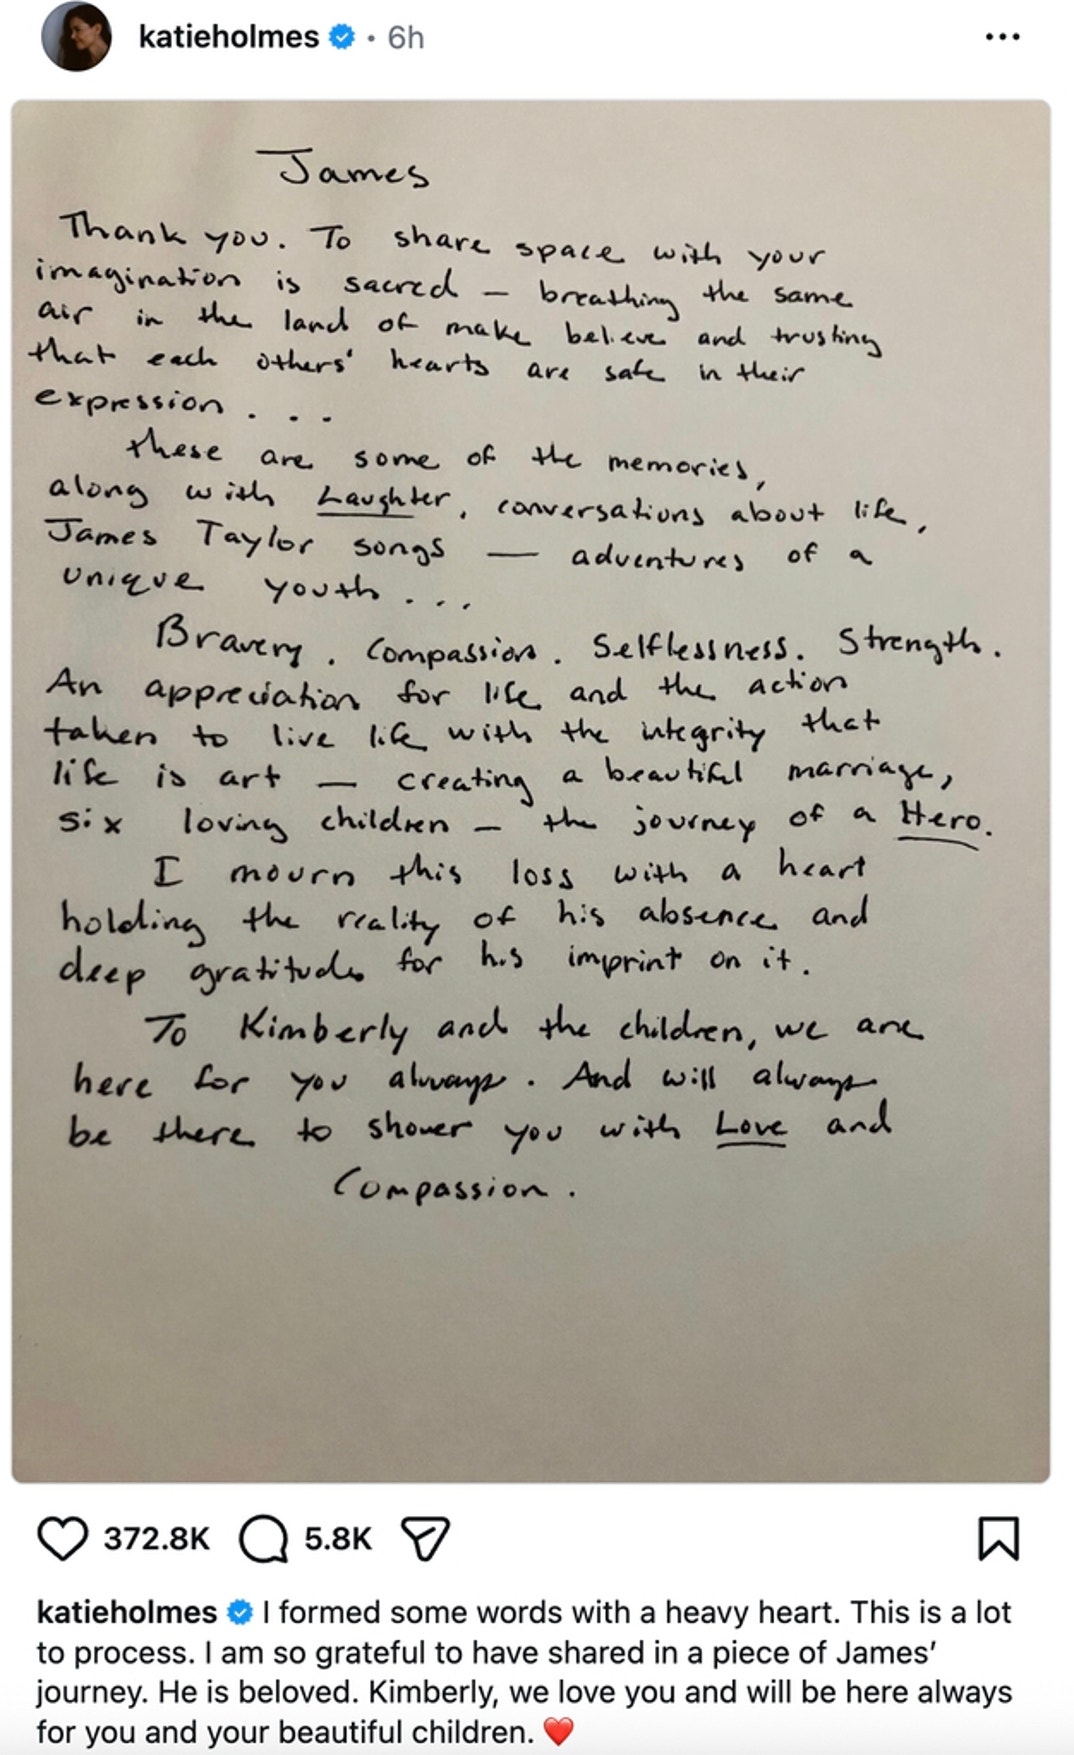 katieholmes • 6h
James
Thank you. To share space with your
imagination is sacred — breathing the same
air in the land of make believe and trusting
that each others' hearts are safe in their
expression . . .
these are some of the memories,
along with Laughter, conversations about life,
James Taylor songs — adventures of a
unique youth . . .
Bravery. Compassion. Selflessness. Strength.
An appreciation for life and the action
taken to live life with the integrity that
life is art — creating a beautiful marriage,
six loving children — the journey of a Hero.
I mourn this loss with a heart
holding the reality of his absence and
deep gratitude for his imprint on it.
To Kimberly and the children, we are
here for you always. And will always
be there to shower you with Love and
Compassion.
372.8K 5.8K
katieholmes I formed some words with a heavy heart. This is a lot
to process. I am so grateful to have shared in a piece of James’
journey. He is beloved. Kimberly, we love you and will be here always
for you and your beautiful children. ❤️